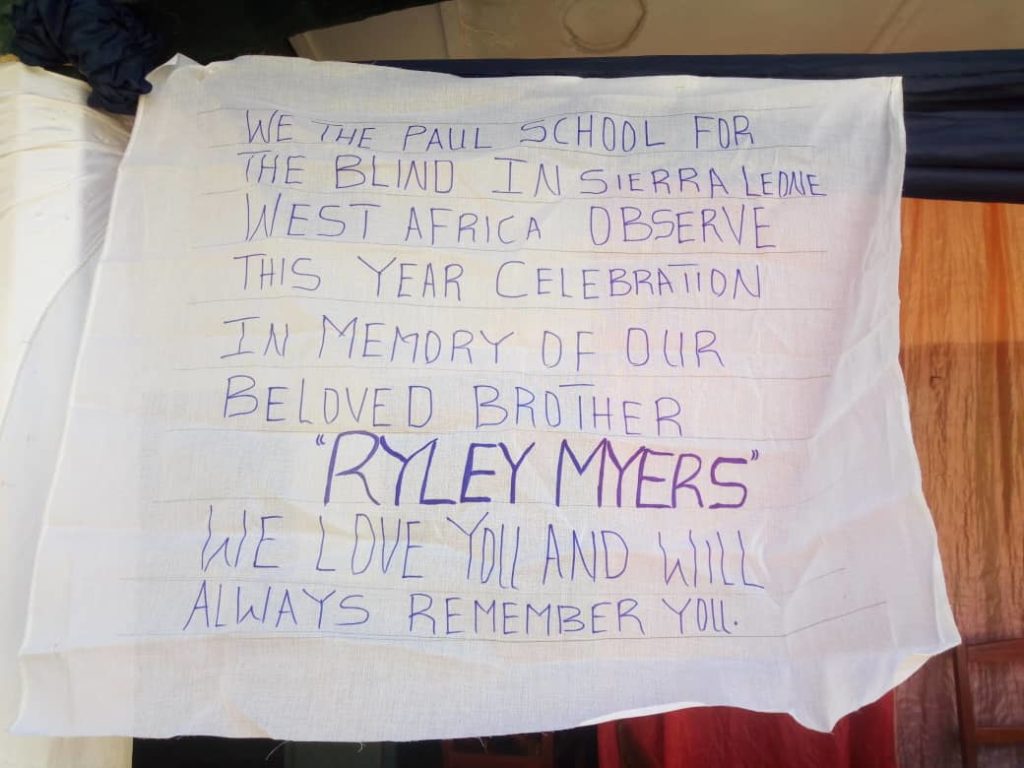 WE THE PAUL SCHOOL FOR
THE BLIND IN SIERRA LEONE
WEST AFRICA OBSERVE
THIS YEAR CELEBRATION
IN MEMORY OF OUR
BELOVED BROTHER
"RYLEY MYERS"
WE LOVE YOU AND WILL
ALWAYS REMEMBER YOU.